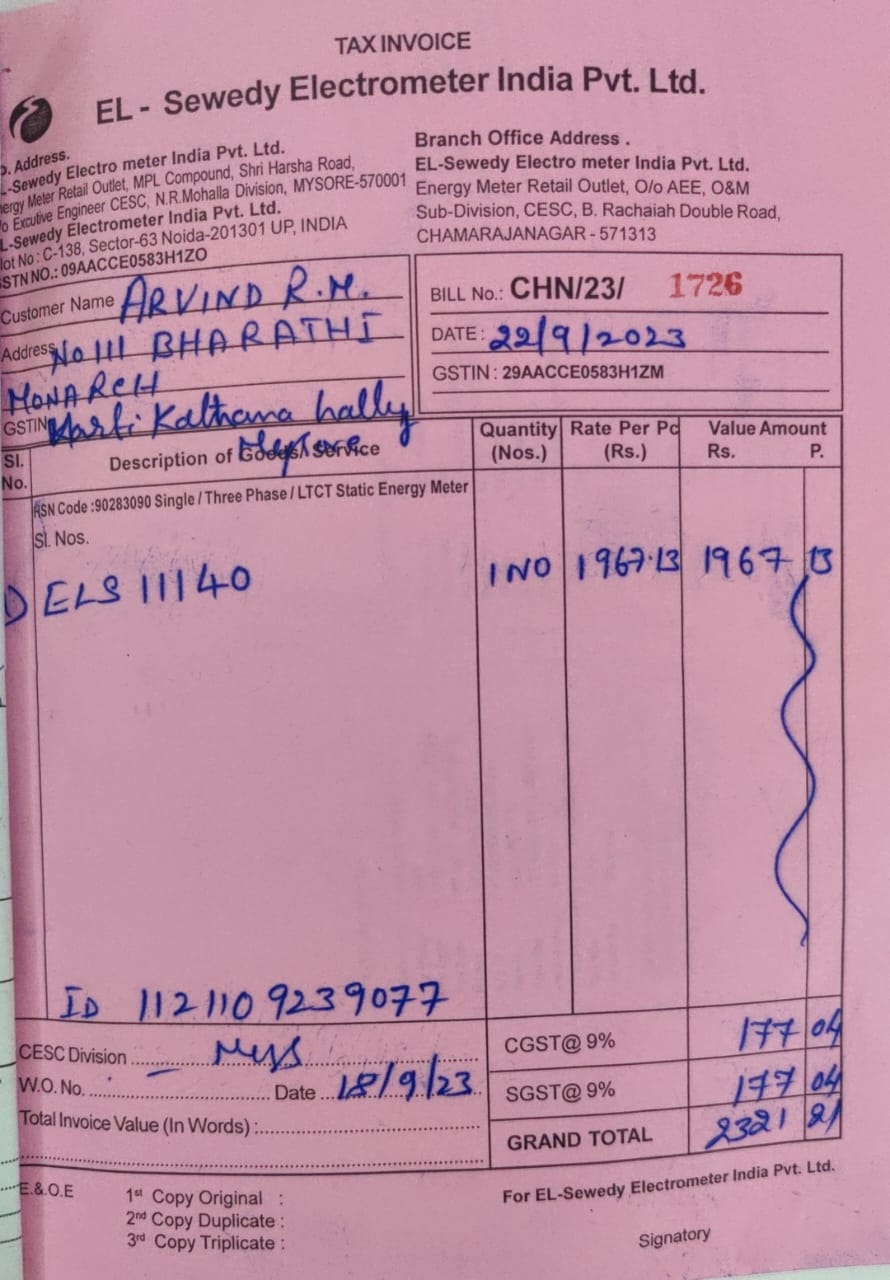 TAX INVOICE
EL - Sewedy Electrometer India Pvt. Ltd.
Address.
-Sewedy Electro meter India Pvt. Ltd.
ergy Meter Retail Outlet, MPL Compound, Shri Harsha Road,
o Excutive Engineer CESC, N.R.Mohalla Division, MYSORE-570001
L-Sewedy Electrometer India Pvt. Ltd.
lot No : C-138, Sector-63 Noida-201301 UP, INDIA
STN NO.: 09AACCE0583H1ZO
Branch Office Address .
EL-Sewedy Electro meter India Pvt. Ltd.
Energy Meter Retail Outlet, O/o AEE, O&M
Sub-Division, CESC, B. Rachaiah Double Road,
CHAMARAJANAGAR - 571313
Customer Name ARVIND R.M.
Address No 111 BHARATHI
MONARCH
GSTIN
BILL No.: CHN/23/ 1726
DATE : 22/9/2023
GSTIN : 29AACCE0583H1ZM
Sl. No. Description of Goods / Service Quantity (Nos.) Rate Per Pc (Rs.) Value Amount Rs. P.
HSN Code :90283090 Single / Three Phase / LTCT Static Energy Meter
Sl. Nos.
ELS 11140 1 NO 1967.13 1967 13
ID 112110 9239077
CESC Division
W.O. No. Date 18/9/23
Total Invoice Value (In Words) :
CGST@ 9% 177 04
SGST@ 9% 177 04
GRAND TOTAL 2321 21
E.&.O.E
1st Copy Original :
2nd Copy Duplicate :
3rd Copy Triplicate :
For EL-Sewedy Electrometer India Pvt. Ltd.
Signatory